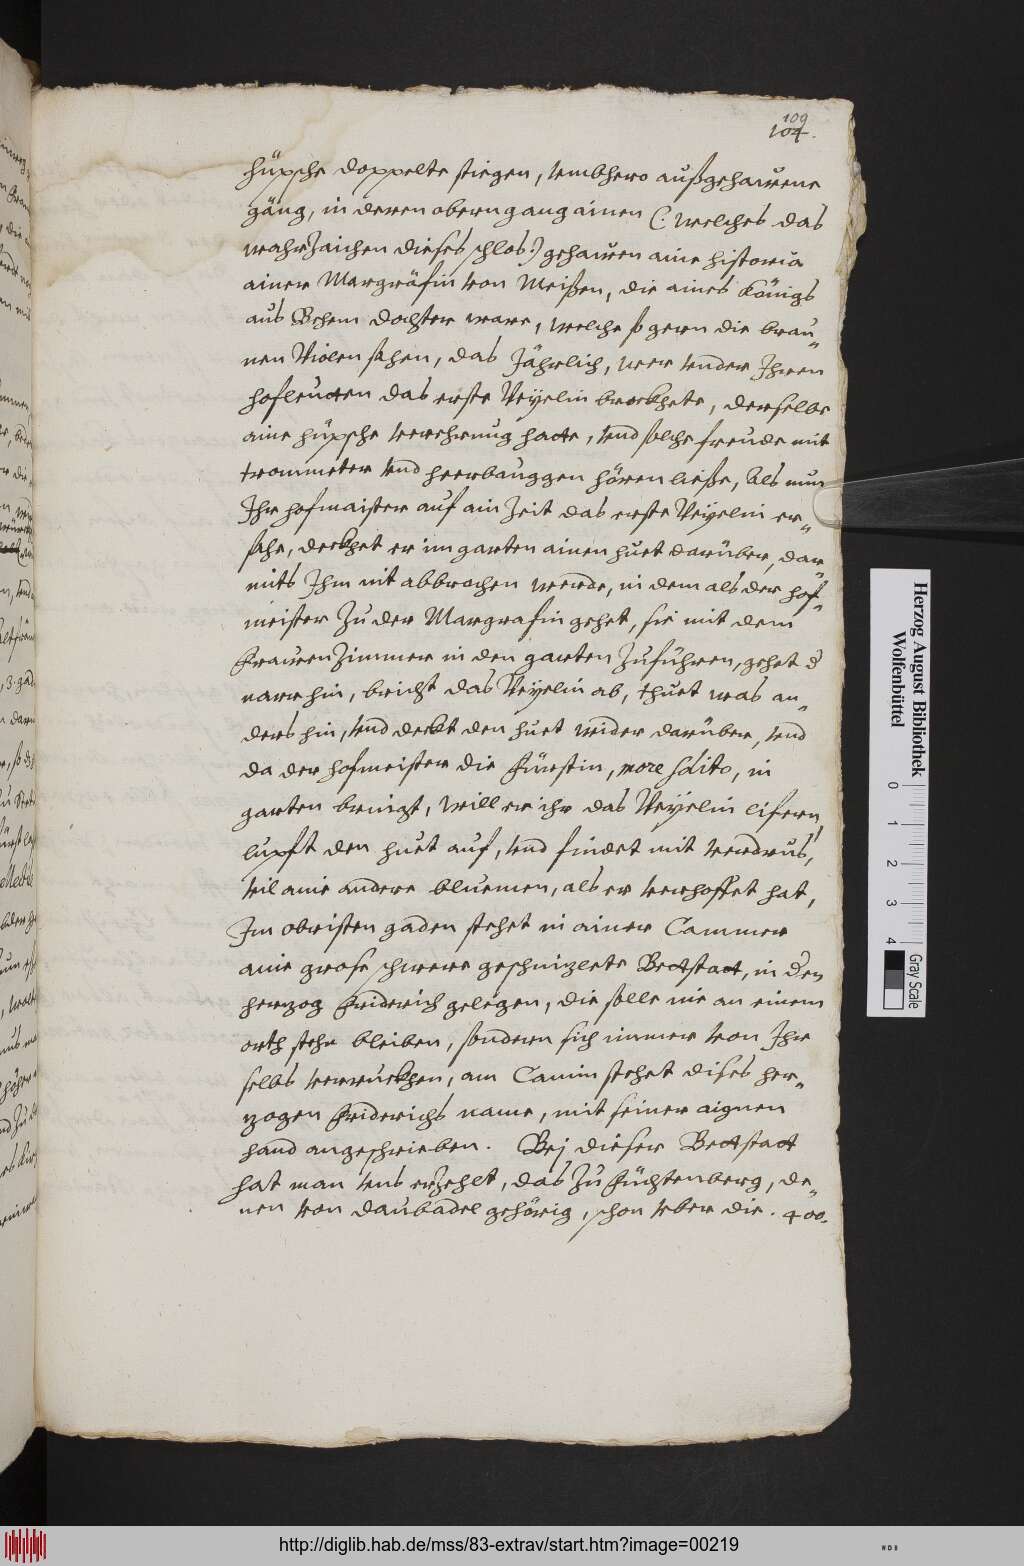 109
104.
hüpsche doppelte stiegen, vmbhero außgehauene
gäng, in deren obern gang ainen (: welches das
wahrzaichen dieses schlos :) gehauen aine historia
ainer Margräfin von Meißen, die aines Königs
aus Behem dochter ware, welche so gern die brau„
nen Violen sahen, das Jährlich, wer vnder Ihren
hofleutten das erste Veyelin brockhete, derselbe
aine hüpsche verehrung hatte, vnd solche freude mit
trommeter vnd heerbauggen hören ließe, Als nun
Ihr hofmaister auf ain Zeit das erste Veyelin er„
sahe, deckhet er im garten ainen huet darüber, dar„
mits Ihm nit abbrochen werde, in dem als der hof„
meister Zu der Margrafin gehet, sie mit dem
Frauenzimmer in den garten Zuführen, gehet d
narr hin, bricht das Veyelin ab, thuet was an„
ders hin, vnd deckt den huet wider darüber, vnd
da der hofmeister die Fürstin, more solito, in
garten bringt, will er ihr das Veyelin lifern,
lupft den huet auf, vnd findet mit verdrus,
vil ain andere bluemen, als er verhoffet hat,
Im obristen gaden stehet in ainer Cammer
ain grose schwere geschnizlete Bettstatt, in den
herzog Friderich gelegen, die solle nie an einem
orth stehn bleiben, sondern sich immer von Ihr
selbs verruckhen, am Camin stehet dises her„
zogen Friderichs name, mit seiner aignen
hand angeschrieben. Bej dieser Bettstatt
hat man vns erzehlt, das Zu Füchtenberg, de„
nen von Daubadel gehörig, schon vber die . 400.
Herzog August Bibliothek
Wolfenbüttel
0 1 2 3 4
Gray Scale
http://diglib.hab.de/mss/83-extrav/start.htm?image=00219